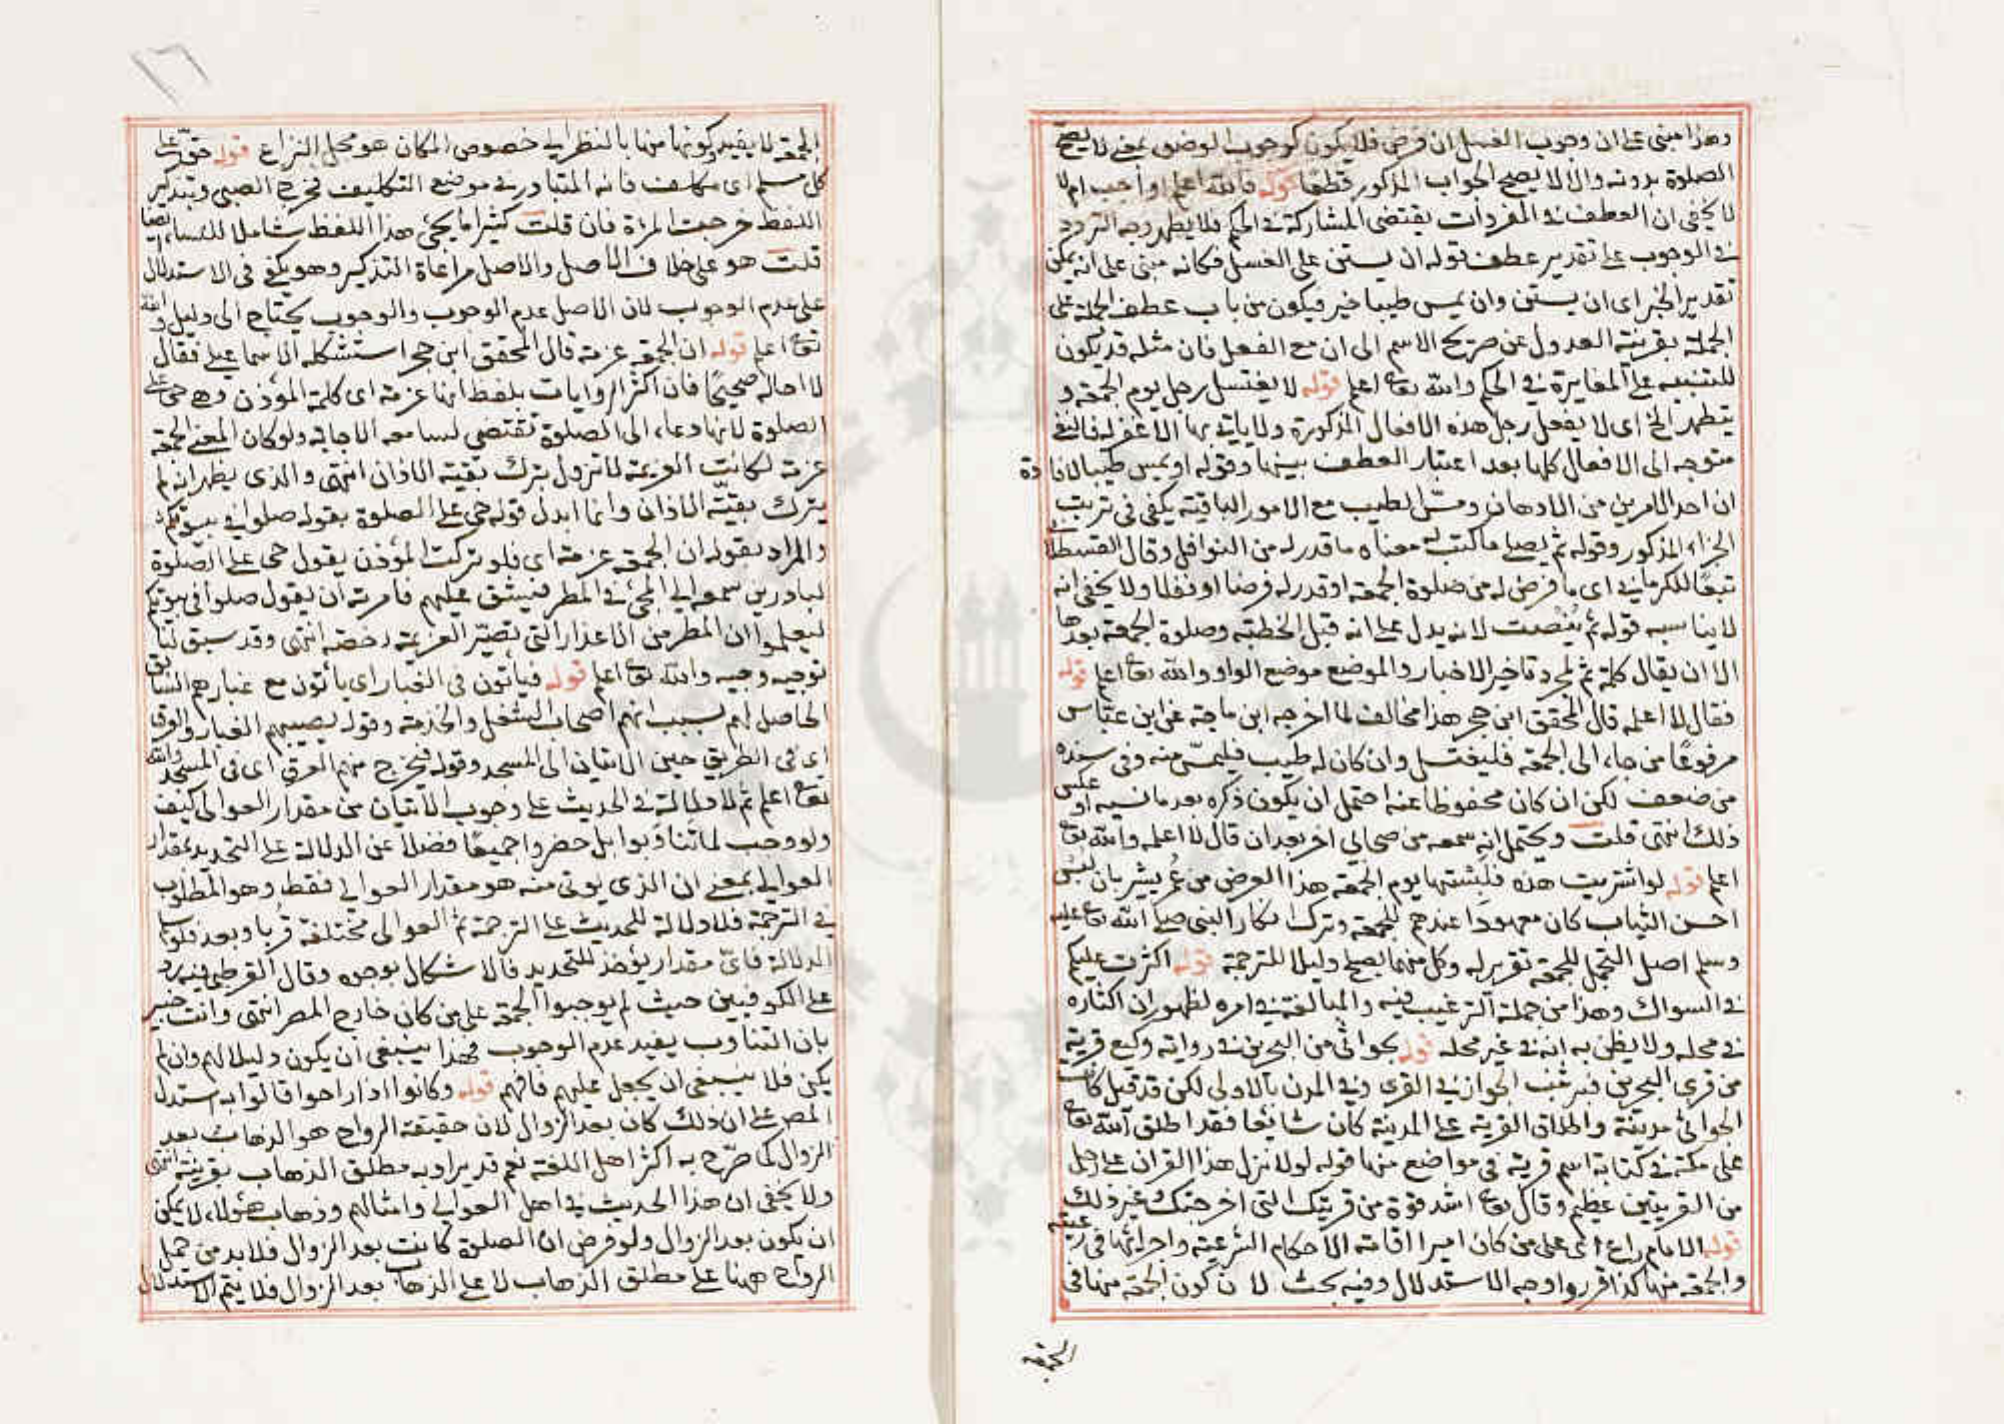 وهذا مبنى على ان وجوب الغسل ان فرض فلا يكون كوجوب الوضوء بمعنى لا يصح
الصلوة بدونه والا لا يصح الجواب المذكور قطعا قوله فالله اعلم اواجب ام لا
لا يخفى ان العطف فى المفردات يقتضى المشاركة فى الحكم فلا يظهر وجه التردد
فى الوجوب على تقدير عطف قوله ان يستن على الغسل فكانه مبنى على انه يمكن
تقدير الخبر اى ان يستن وان يمس طيبا خير فيكون من باب عطف الجملة على
الجملة بقرينة العدول عن صريح الاسم الى ان مع الفعل فان مثله قد يكون
للتنبيه على المغايرة فى الحكم والله تعا اعلم قوله لا يغتسل رجل يوم الجمعة و
يتطهر الخ اى لا يفعل رجل هذه الافعال المذكورة ولا ياتى بها الا غفر له فالنفى
متوجه الى الافعال كلها بعد اعتبار العطف بينها وقوله او يمس طيبا لافادة
ان احد الامرين من الادهان ومسّ الطيب مع الامور الباقية يكفى فى ترتب
الجزاء المذكور وقوله ثم يصلى ما كتب له معناه ما قدر له من النوافل وقال القسطلانى
تبعًا للكرمانى اى ما فرض له من صلوة الجمعة او قدر له فرضا او نفلا ولا يخفى انه
لا يناسبه قوله ثم يُنْصت لانه يدل على انه قبل الخطبة وصلوة الجمعة بعدها
الا ان يقال كلمة ثم لمجرد تاخير الاخبار والموضع موضع الواو والله تعا اعلم قوله
فقال لا اعلمه قال المحقق ابن حجر هذا مخالف لما اخرجه ابن ماجة عن ابن عبّاس
مرفوعًا من جاء الى الجمعة فليغتسل وان كان له طيب فليمسّ منه وفى سنده
من ضعف لكن ان كان محفوظا عنه احتمل ان يكون ذكره بعد ما نسيه او عكس
ذلك انتهى قلت ويحتمل انه سمعه من صحابى اخر بعد ان قال لا اعلمه والله تعا
اعلم قوله لو اشتريت هذه فلبستها يوم الجمعة هذا العرض من عُمر يشير بان لبس
احسن الثياب كان معهودا عندهم للجمعة وترك انكار النبى صلى الله تعا عليه
وسلم اصل التجمل للجمعة تقرير له وكل منهما يصلح دليلا للترجمة قوله اكثرت عليكم
فى السواك وهذا من جملة الترغيب فيه والمبالغة فى امره لظهور ان اكثاره
فى محله ولا يظن به انه فى غير محله قوله بجواثى من البحرين فى رواية وكيع قرية
من قرى البحرين فيه ثبت الجواز فى القرى وفى المدن بالاولى لكن قد قيل كانت
الجواثى مدينة واطلاق القرية على المدينة كان شائعا فقد اطلق الله تعا
على مكة فى كتابه اسم قرية فى مواضع منها قوله لولا نزل هذا القران على رجل
من القريتين عظيم وقال تعا اشد قوة من قريتك التى اخرجتك غير ذلك
قوله الامام راع اى على من كان اميرا اقامة الاحكام الشرعية واجرائها فى رعيته
والجمعة منها كذا قرروا وجه الاستدلال وفيه بحث لان كون الجمعة منها فى
الجمعة
الجمعة لا يفيد كونها منها بالنظر الى خصوص المكان هو محل النزاع قوله حقّ على
كل مسلم اى مكلف فانه المتبادر فى موضع التكليف فخرج الصبى وبتذكير
اللفظ خرجت المراة فان قلت كثيرا ما يجئ هذا اللفظ شاملا للنساء ايضا
قلت هو على خلاف الاصل والاصل مراعاة التذكير وهو يكفى فى الاستدلال
على عدم الوجوب لان الاصل عدم الوجوب والوجوب يحتاج الى دليل والله
تعا اعلم قوله ان الجمعة عزمة قال المحقق ابن حجر استشكله الاسماعيلى فقال
لا اخاله صحيحًا فان اكثر الروايات بلفظ انها عزمة اى كلمة المؤذن وهى حى على
الصلوة لانها دعاء الى الصلوة تقتضى لسامعه الاجابة ولو كان المعنى الجمعة
عزمة لكانت العزيمة لا تزول بترك بقية الاذان انتهى والذى يظهر انه لم
يترك بقيّة الاذان وانما ابدل قوله حى على الصلوة بقوله صلوا فى بيوتكم
والمراد بقوله ان الجمعة عزمة اى فلو تركت المؤذن يقول حى على الصلوة
لبادر من سمعه الى المجئ فى المطر فيشق عليهم فامرته ان يقول صلوا فى بيوتكم
ليعلموا ان المطر من الاعذار التى تصيّر العزيمة رخصة انتهى وقد سبق لنا
توجيه وجيه والله تعا اعلم قوله فياتون فى الغبار اى ياتون مع غبارهم السابق
الحاصل لهم بسبب انهم اصحاب الشغل والخدمة وقوله يصيبهم الغبار والعرق
اى فى الطريق حين الاتيان الى المسجد وقوله فيخرج منهم العرق اى فى المسجد والله
تعا اعلم ثم لا دلالة فى الحديث على وجوب الاتيان من مقدار العوالى كيف
ولو وجب لما تناوبوا بل حضروا جميعًا فضلا عن الدلالة على التحديد بمقدار
العوالى بمعنى ان الذى يوتى منه هو مقدار العوالى فقط وهو المطلوب
فى الترجمة فلا دلالة للحديث على الترجمة ثم العوالى مختلفة قُربا وبعدا فلو سلم
الدلالة فاىّ مقدار يؤخذ للتحديد فالاشكال بوجوه وقال القرطبى فيه رد
على الكوفيين حيث لم يوجبوا الجمعة على من كان خارج المصر انتهى وانت خبير
بان التناوب يفيد عدم الوجوب فهذا ينبغى ان يكون دليلا لهم وان لم
يكن فلا ينبغى ان يجعل عليهم فافهم قوله وكانوا اذا راحوا قالوا به استدل
المصر على ان ذلك كان بعد الزوال لان حقيقة الرواح هو الذهاب بعد
الزوال كما صرّح به اكثر اهل اللغة نعم قد يراد به مطلق الذهاب بقرينة انتهى
ولا يخفى ان هذا الحديث فى اهل العوالى وامثالهم وذهاب هؤلاء لا يمكن
ان يكون بعد الزوال ولو فرض ان الصلوة كانت بعد الزوال فلا بد من حمل
الرواح ههنا على مطلق الذهاب لا على الذهاب بعد الزوال فلا يتم الاستدلال